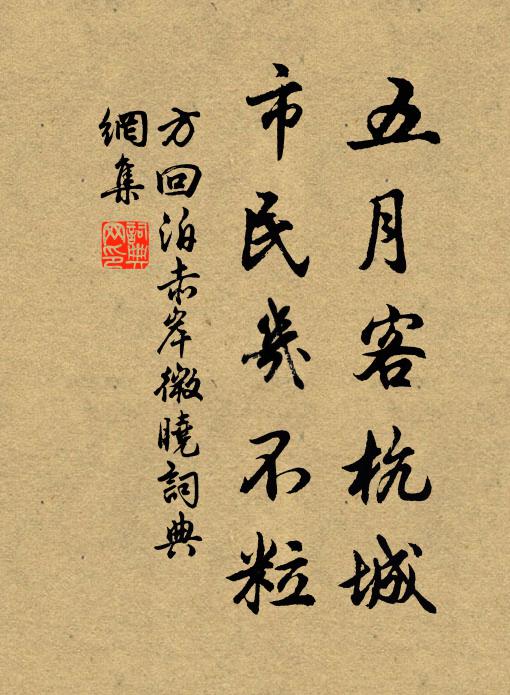 五月客杭城
市民幾不粒
方回泊赤岸微曉詞典
網集
詞典
网印